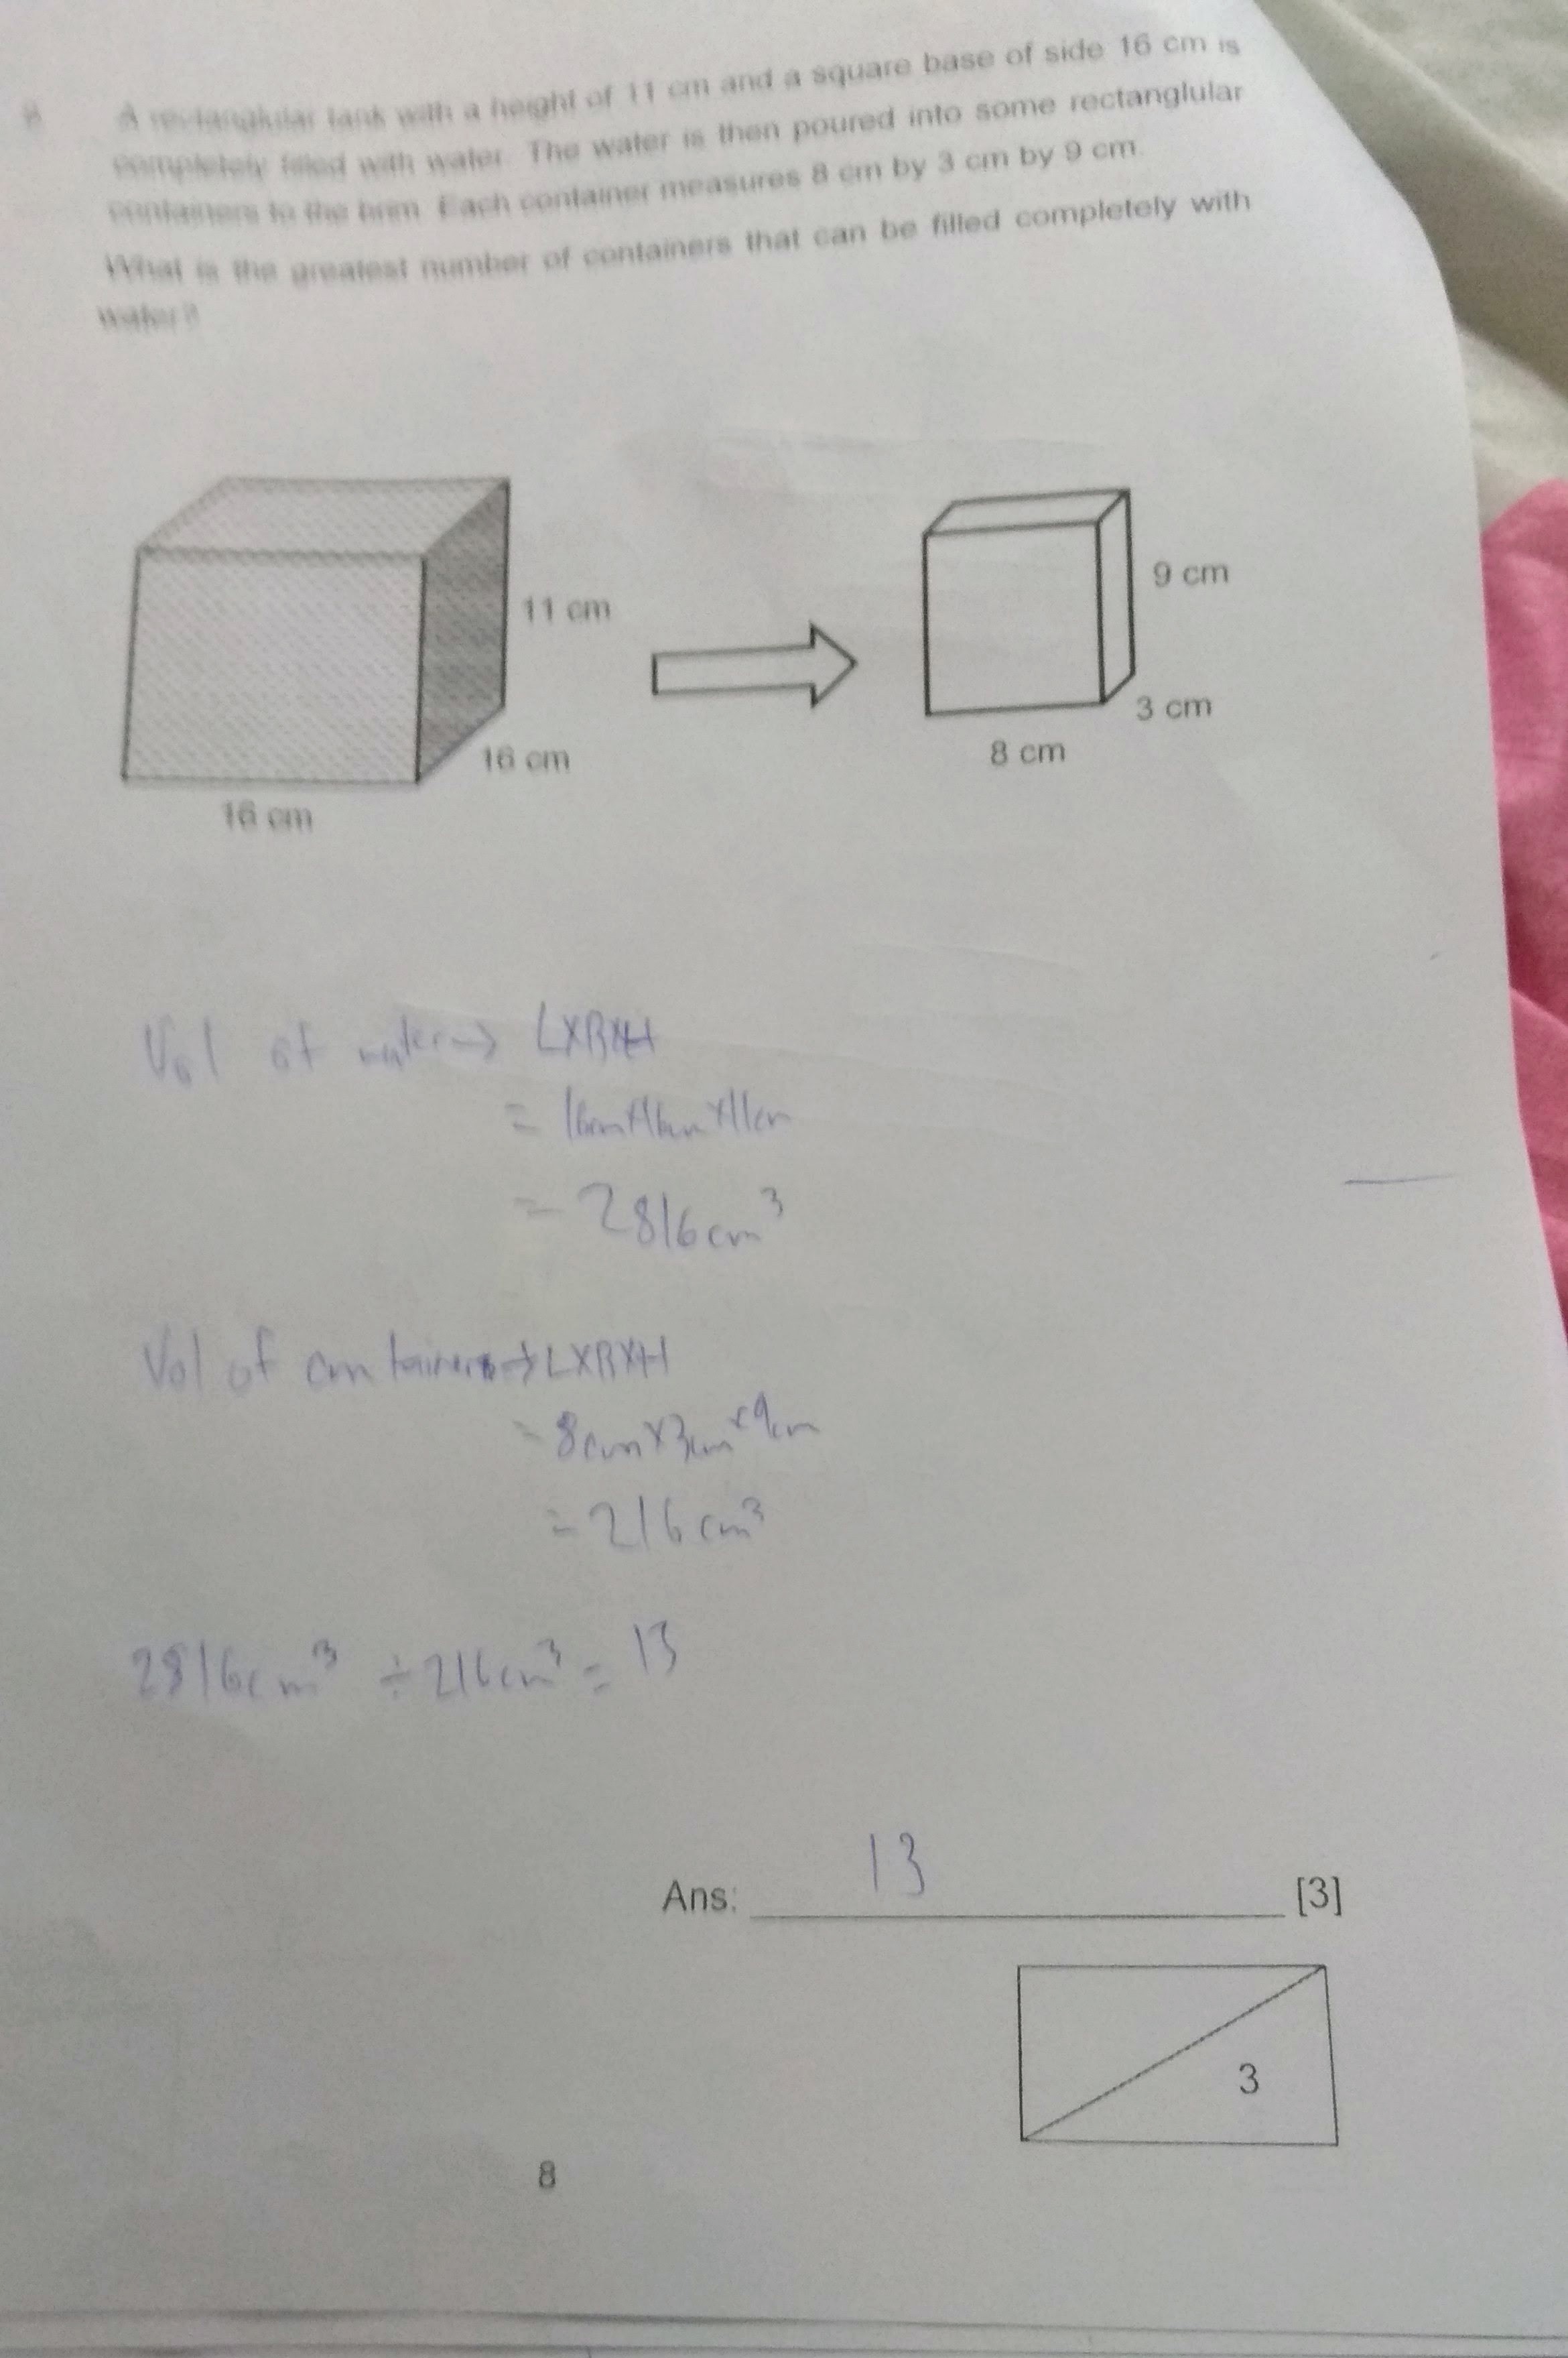 A rectanglular tank with a height of 11 cm and a square base of side 16 cm is
completely filled with water. The water is then poured into some rectanglular
containers to the brim. Each container measures 8 cm by 3 cm by 9 cm.
What is the greatest number of containers that can be filled completely with
water?
11 cm
16 cm
16 cm
9 cm
3 cm
8 cm
Vol of water → LXBXH
= 16cm×16cm×11cm
= 2816cm³
Vol of containers → LXBXH
= 8cm×3cm×9cm
= 216cm³
2816cm³ ÷ 216cm³ = 13
Ans: 13 [3]
3
8